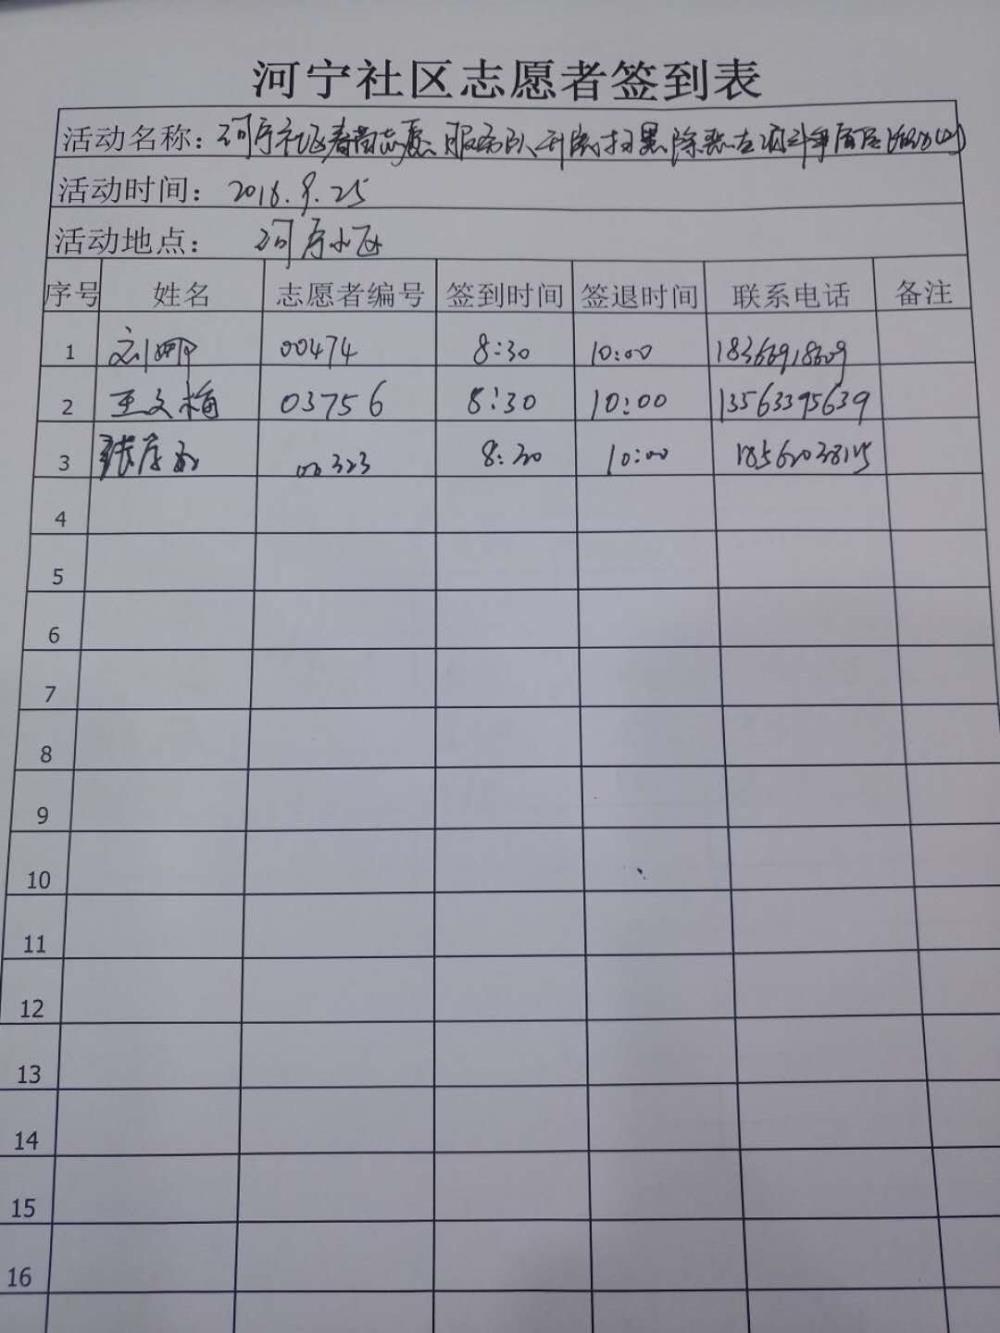 河宁社区志愿者签到表
活动名称：河宁社区春雨志愿服务队开展扫黑除恶专项斗争宣传活动
活动时间：2018.9.25
活动地点：河宁小区
序号 姓名 志愿者编号 签到时间 签退时间 联系电话 备注
1 刘娜 00474 8:30 10:00 18366918609
2 王文梅 03756 8:30 10:00 13563395639
3 张 00323 8:30 10:00 18562038115
4
5
6
7
8
9
10
11
12
13
14
15
16